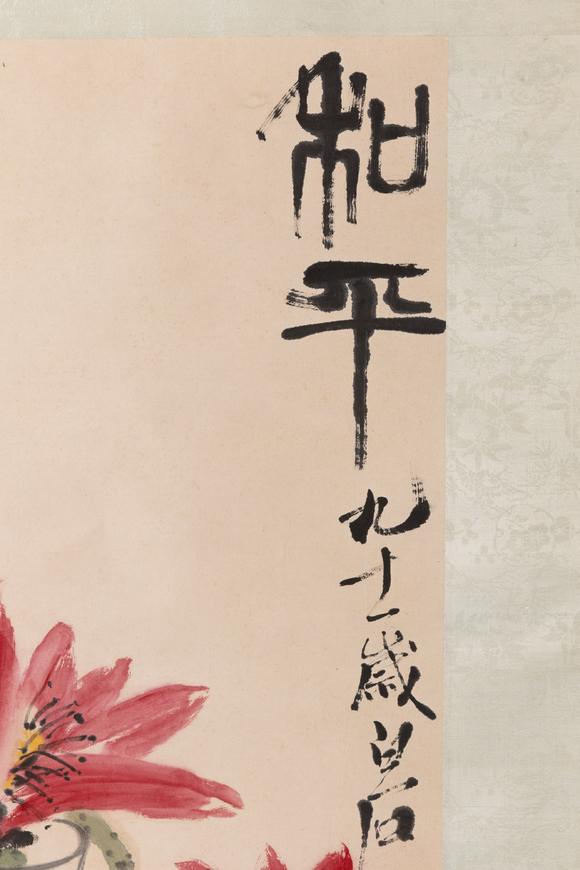 和平九十一歲白石